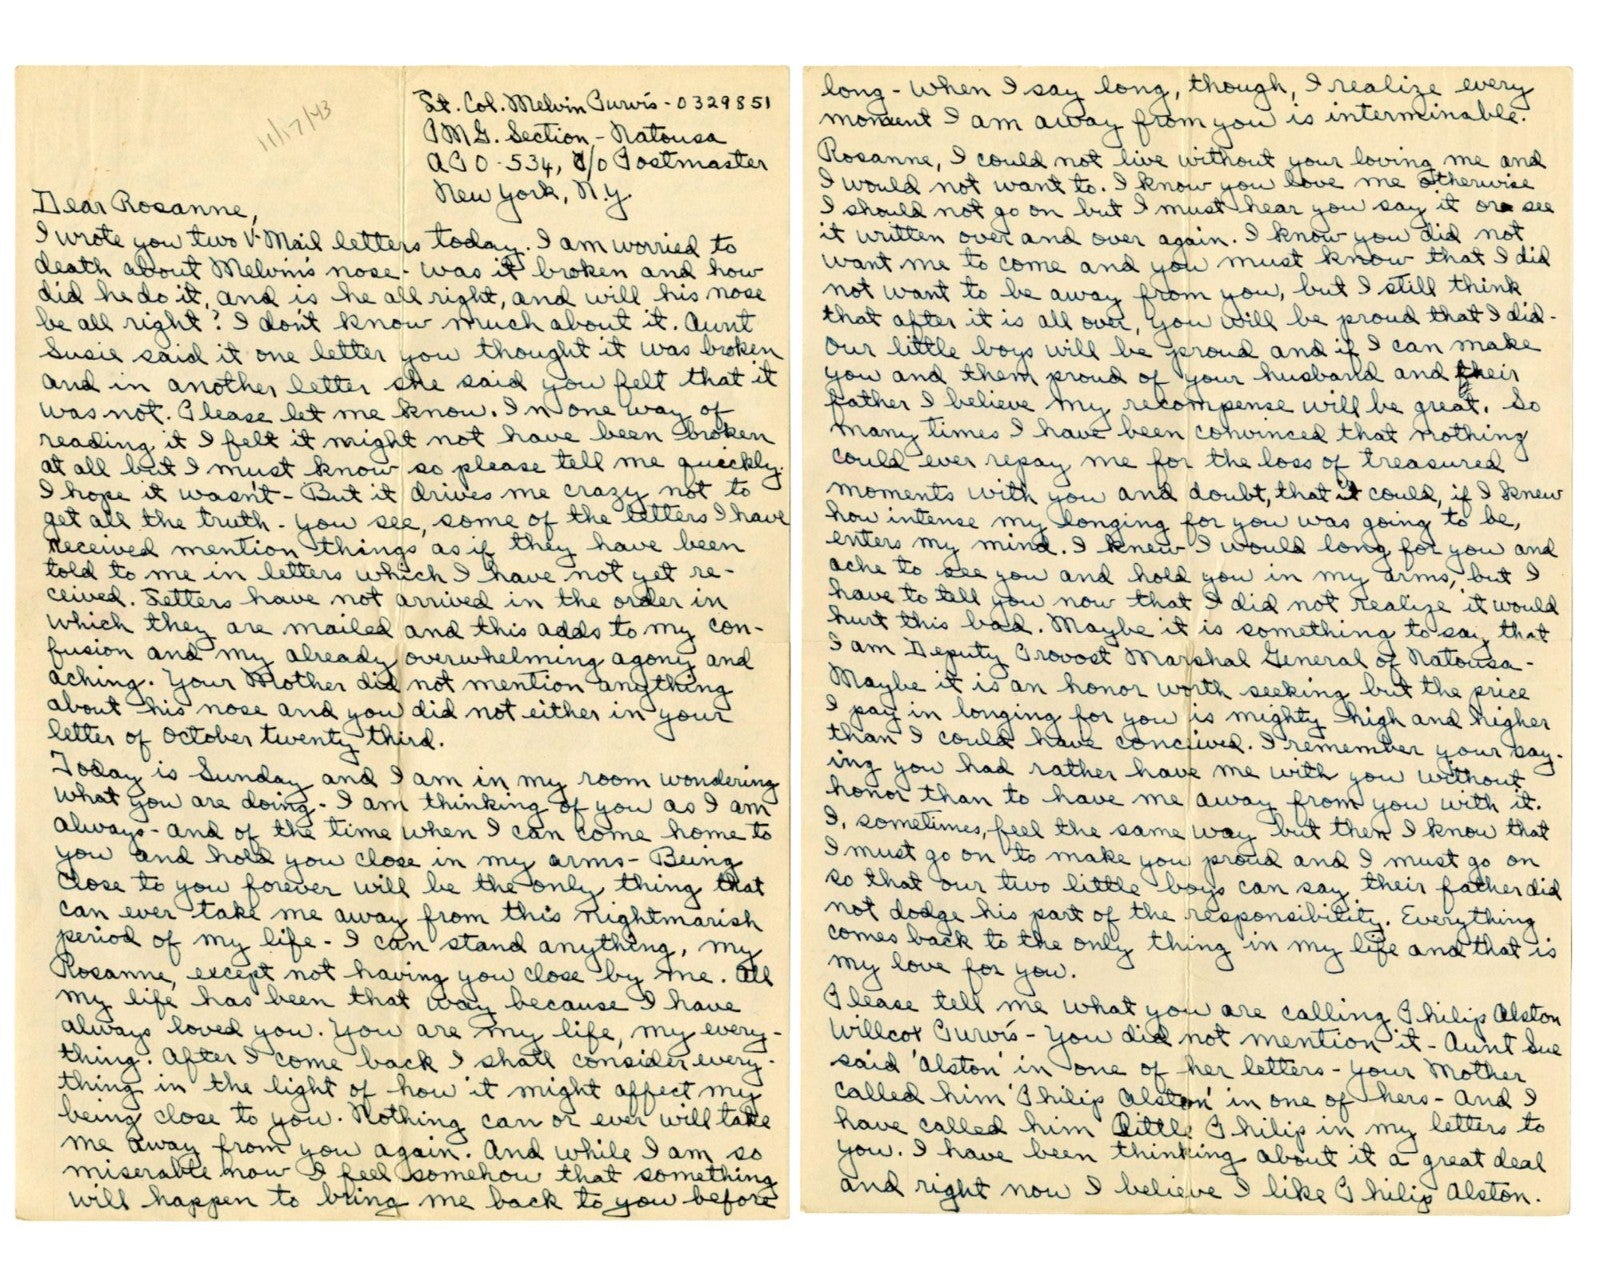 11/17/43
Lt. Col. Melvin Purvis - 0329851
P.M.G. Section - Natousa
A P O - 534, c/o Postmaster
New York, N.Y.
Dear Rosanne,
I wrote you two V-Mail letters today. I am worried to
death about Melvin's nose - was it broken and how
did he do it, and is he all right, and will his nose
be all right? I don't know much about it. Aunt
Susie said it one letter you thought it was broken
and in another letter she said you felt that it
was not. Please let me know. In one way of
reading it I felt it might not have been broken
at all but I must know so please tell me quickly.
I hope it wasn't - But it drives me crazy not to
get all the truth - you see, some of the letters I have
received mention things as if they have been
told to me in letters which I have not yet re-
ceived. Letters have not arrived in the order in
which they are mailed and this adds to my con-
fusion and my already overwhelming agony and
aching. Your Mother did not mention anything
about his nose and you did not either in your
letter of October twenty third.
Today is Sunday and I am in my room wondering
what you are doing - I am thinking of you as I am
always - and of the time when I can come home to
you and hold you close in my arms - Being
close to you forever will be the only thing that
can ever take me away from this nightmarish
period of my life - I can stand anything, my
Rosanne, except not having you close by me. All
my life has been that way because I have
always loved you. You are my life, my every-
thing. After I come back I shall consider every-
thing in the light of how it might affect my
being close to you. Nothing can or ever will take
me away from you again. And while I am so
miserable now I feel somehow that something
will happen to bring me back to you before
long - when I say long, though, I realize every
moment I am away from you is interminable.
Rosanne, I could not live without your loving me and
I would not want to. I know you love me otherwise
I should not go on but I must hear you say it or see
it written over and over again. I know you did not
want me to come and you must know that I did
not want to be away from you, but I still think
that after it is all over, you will be proud that I did -
our little boys will be proud and if I can make
you and them proud of your husband and their
father I believe my recompense will be great. So
many times I have been convinced that nothing
could ever repay me for the loss of treasured
moments with you and doubt, that it could, if I knew
how intense my longing for you was going to be,
enters my mind. I knew I would long for you and
ache to see you and hold you in my arms, but I
have to tell you now that I did not realize it would
hurt this bad. Maybe it is something to say that
I am Deputy Provost Marshal General of Natousa -
Maybe it is an honor worth seeking but the price
I pay in longing for you is mighty high and higher
than I could have conceived. I remember your say-
ing you had rather have me with you without
honor than to have me away from you with it.
I, sometimes, feel the same way but then I know that
I must go on to make you proud and I must go on
so that our two little boys can say their father did
not dodge his part of the responsibility. Everything
comes back to the only thing in my life and that is
my love for you.
Please tell me what you are calling Philip Alston
Willcox Purvis - You did not mention it - Aunt Sue
said 'Alston' in one of her letters - your Mother
called him 'Philip Alston' in one of hers - And I
have called him Little Philip in my letters to
you. I have been thinking about it a great deal
and right now I believe I like Philip Alston.